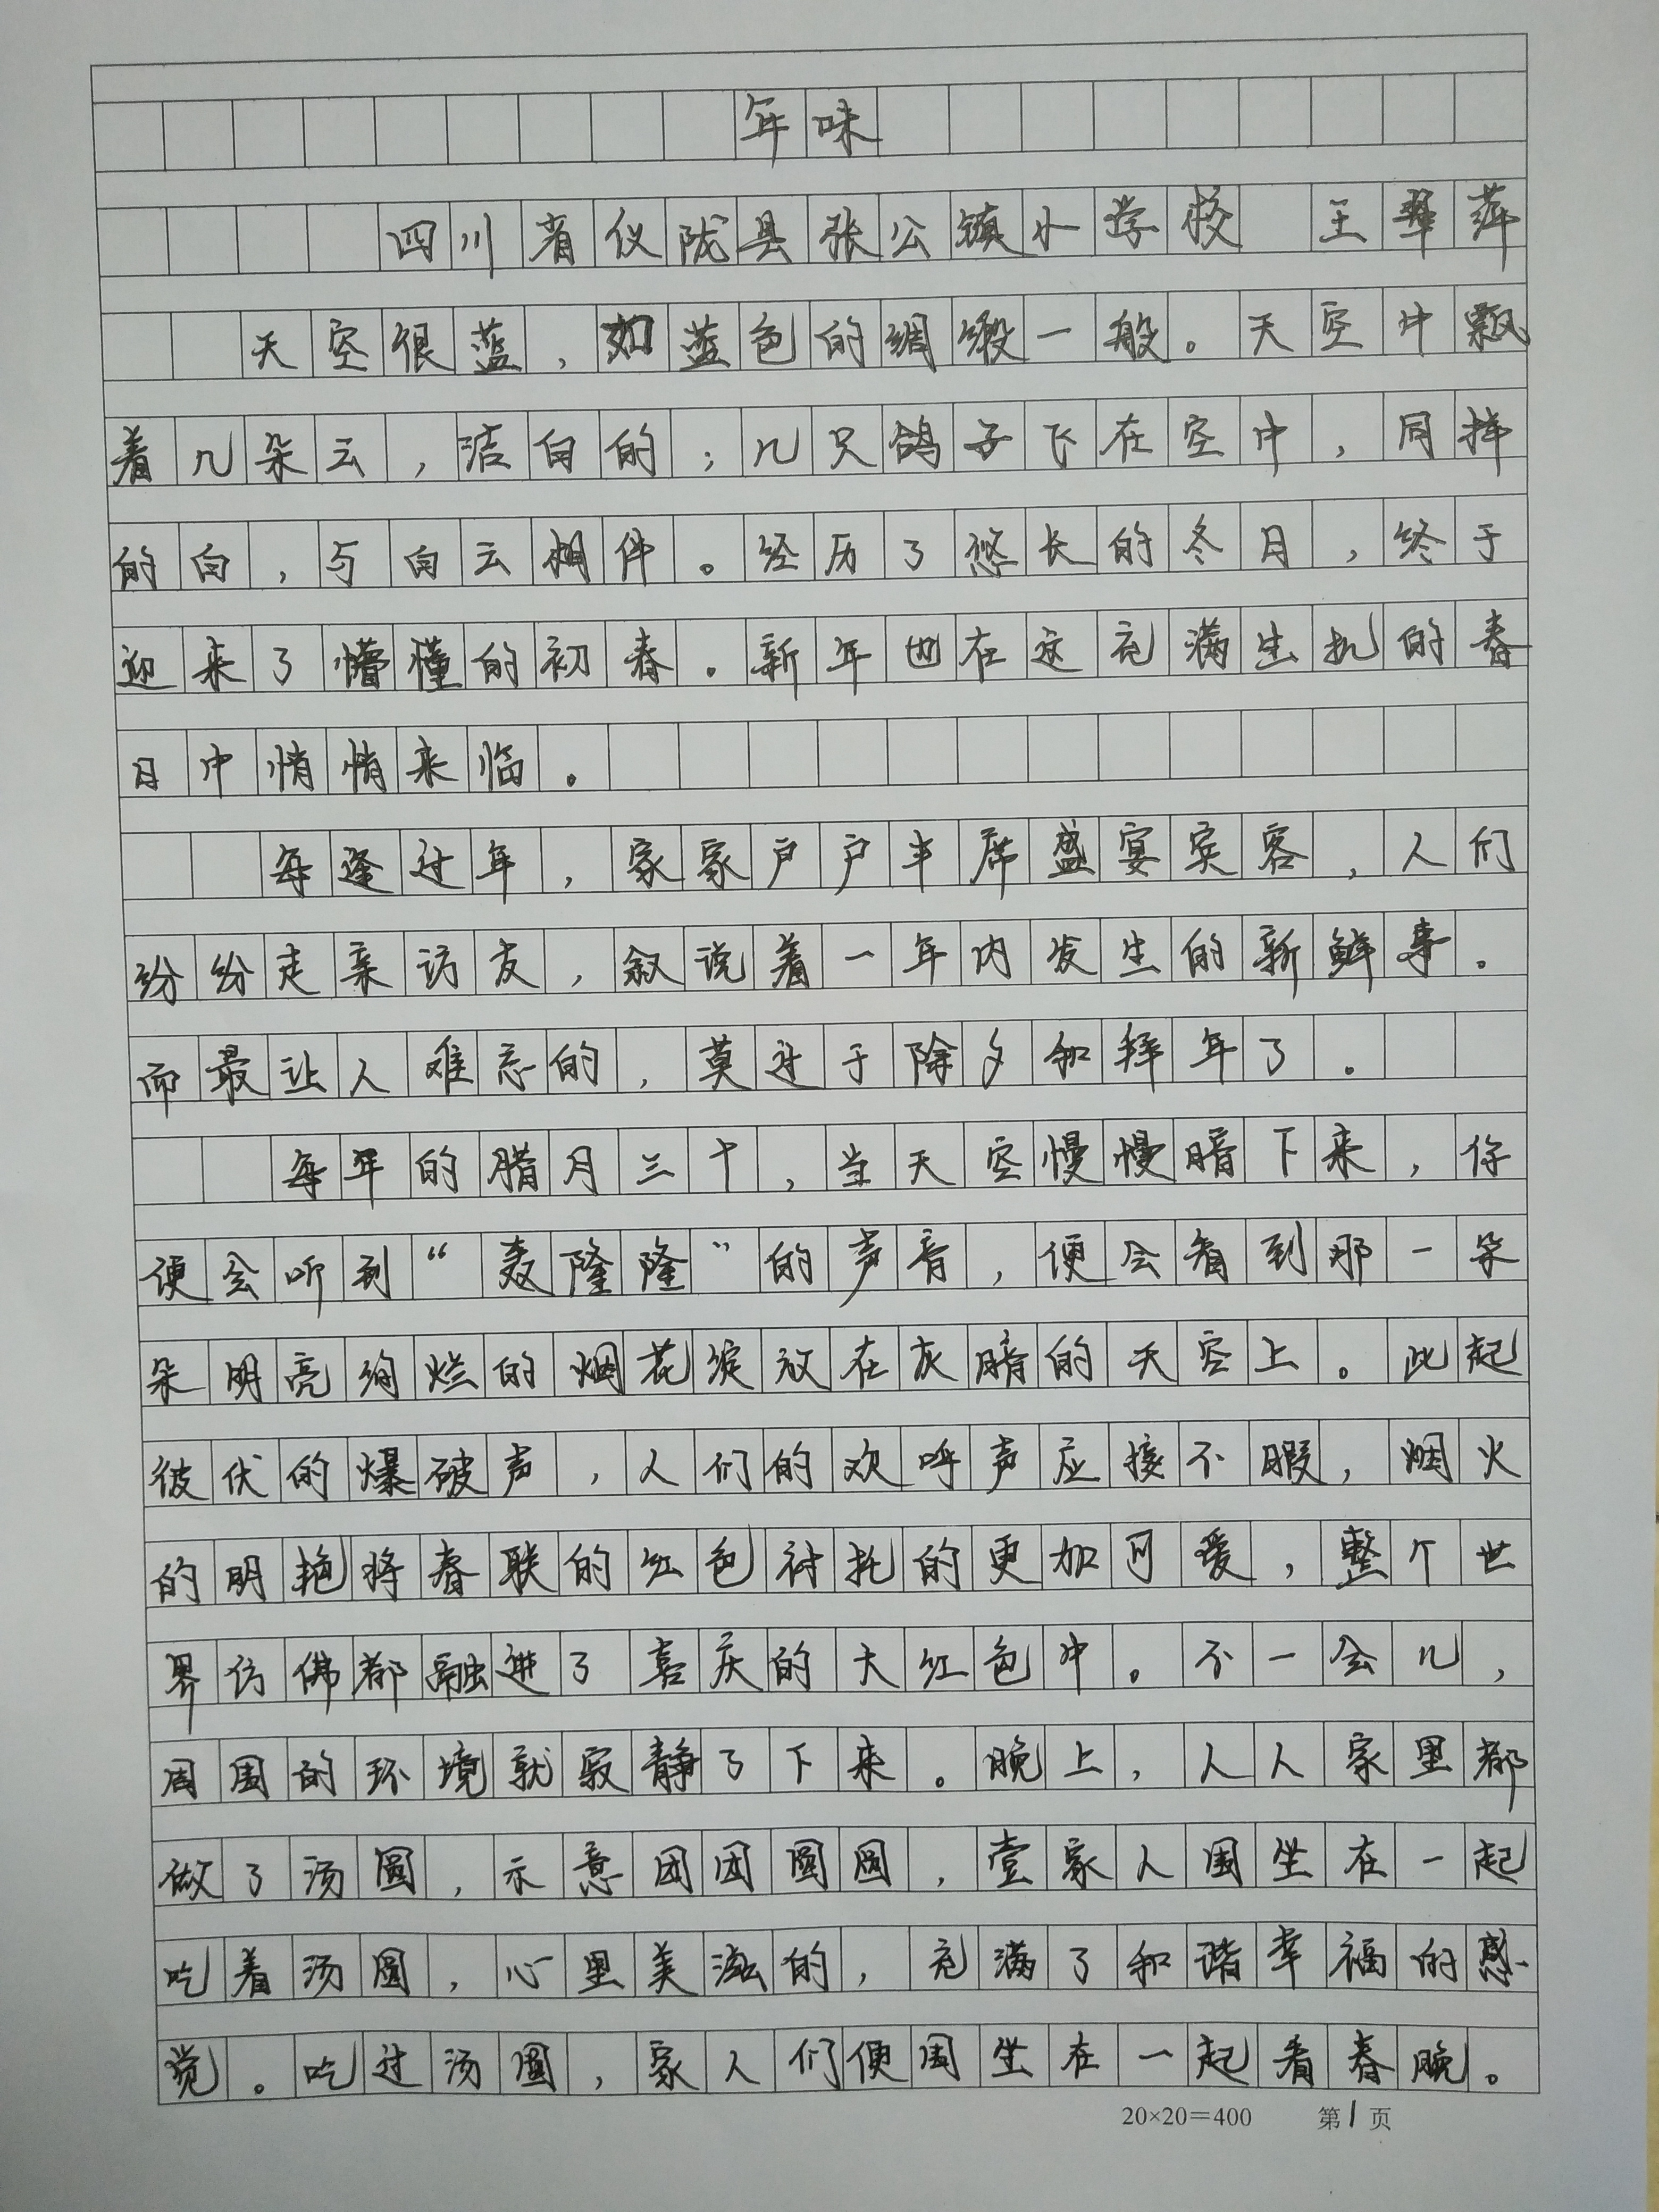 年味
四川省仪陇县张公镇小学校 王翠萍
天空很蓝，如蓝色的绸缎一般。天空中飘
着几朵云，洁白的；几只鸽子飞在空中，同样
的白，与白云相伴。经历了悠长的冬月，终于
迎来了懵懂的初春。新年也在这充满生机的春
日中悄悄来临。
每逢过年，家家户户丰席盛宴宾客，人们
纷纷走亲访友，叙说着一年内发生的新鲜事。
而最让人难忘的，莫过于除夕和拜年了。
每年的腊月三十，当天空慢慢暗下来，你
便会听到“轰隆隆”的声音，便会看到那一朵
朵明亮绚烂的烟花绽放在灰暗的天空上。此起
彼伏的爆破声，人们的欢呼声应接不暇，烟火
的明艳将春联的红色衬托的更加可爱，整个世
界仿佛都融进了喜庆的大红色中。不一会儿，
周围的环境就寂静了下来。晚上，人人家里都
做了汤圆，示意团团圆圆，壹家人围坐在一起
吃着汤圆，心里美滋的，充满了和谐幸福的感
觉。吃过汤圆，家人们便围坐在一起看春晚。
20×20＝400 第1页